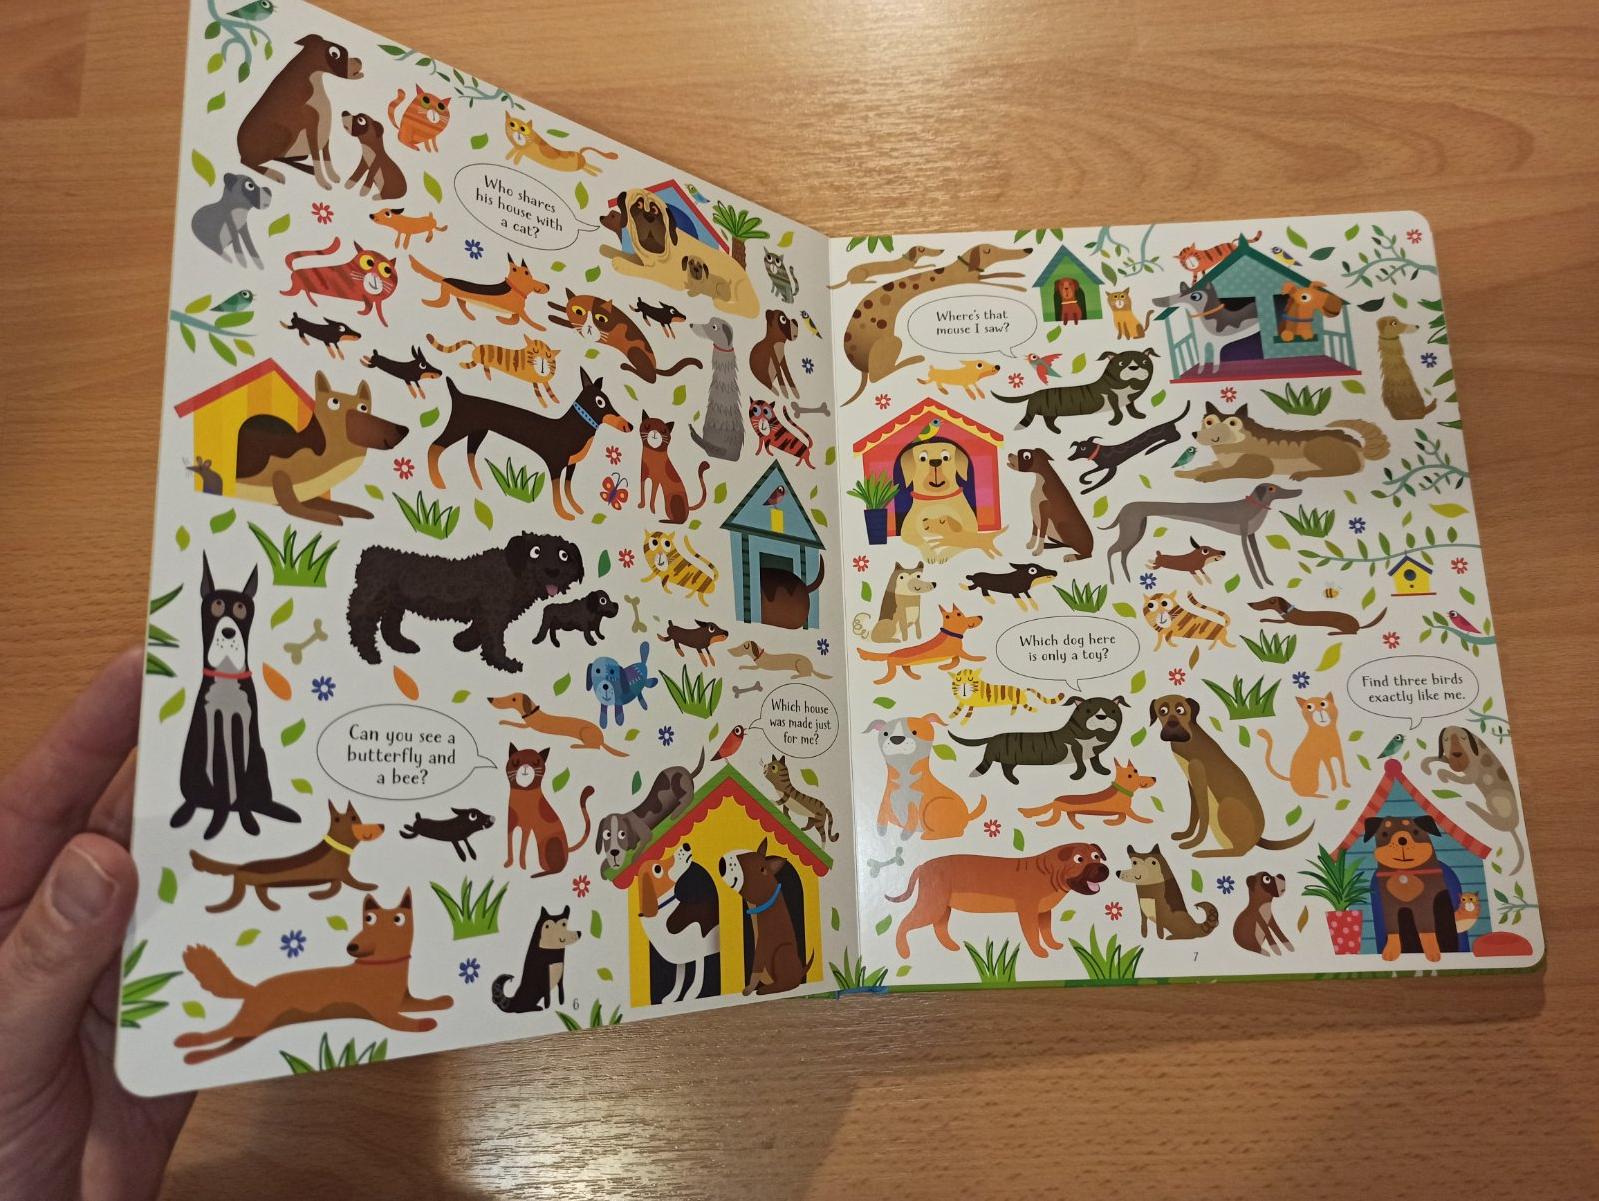 Who shares
his house with
a cat?
Can you see a
butterfly and
a bee?
Which house
was made just
for me?
6
Where's that
mouse I saw?
Which dog here
is only a toy?
Find three birds
exactly like me.
7